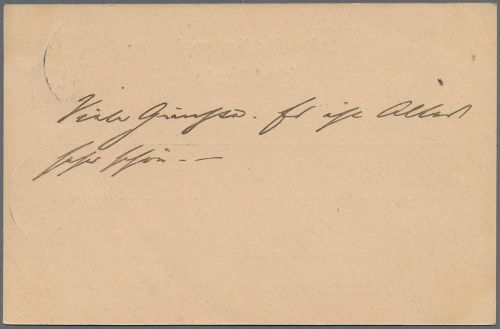 Viele Grüsse. Es ist
sehr schön. —